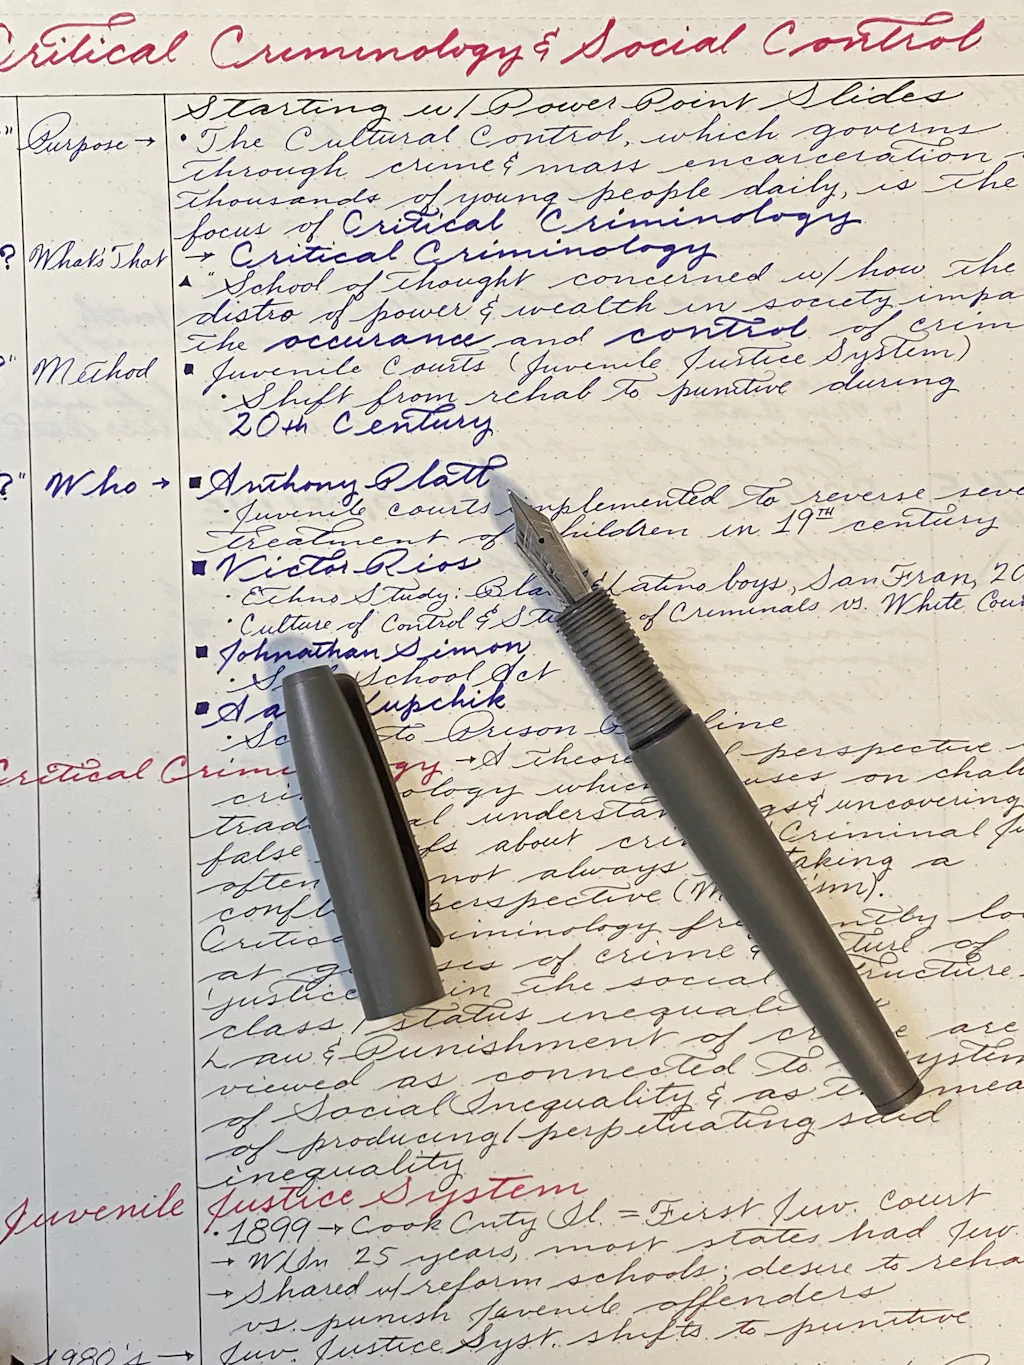 Critical Criminology & Social Control
Starting w/ PowerPoint Slides
" Purpose → • The Cultural Control, which governs
through crime & mass encarceration
thousands of young people daily, is the
focus of Critical Criminology
? What's That → Critical Criminology
▲ "School of thought concerned w/ how the
distro of power & wealth in society impa
the occurance and control of crim
" Method ▪ Juvenile Courts (Juvenile Justice System)
• Shift from rehab to punitive during
20th Century
? Who → ▪ Anthony Platt
• Juvenile courts implemented to reverse seve
treatment of children in 19TH century
▪ Victor Rios
• Ethno Study: Bla & Latino boys, San Fran, 20
• Culture of Control & St of Criminals vs. White Cou
▪ Johnathan Simon
• S School Act
▪ Aa Kupchik
• Sc to Prison P line
Critical Crimi gy → A theore l perspective
cri ology which uses on chall
trad al understan gs & uncovering
false fs about cri Criminal Ju
often not always taking a
confl perspective (M ism).
Critica iminology fre ntly loo
at g ses of crime & ture of
"justice in the social structure
class/status inequali
Law & Punishment of cr e are
viewed as connected to system
of Social Inequality & as the mea
of producing/perpetuating said
inequality
Juvenile Justice System
• 1899 → Cook Cnty Il. = First Juv. court
→ W/In 25 years, most states had Juv.
→ Shared w/ reform schools; desire to reha
vs. punish juvenile offenders
1980's → Juv. Justice Syst. shifts to punitive